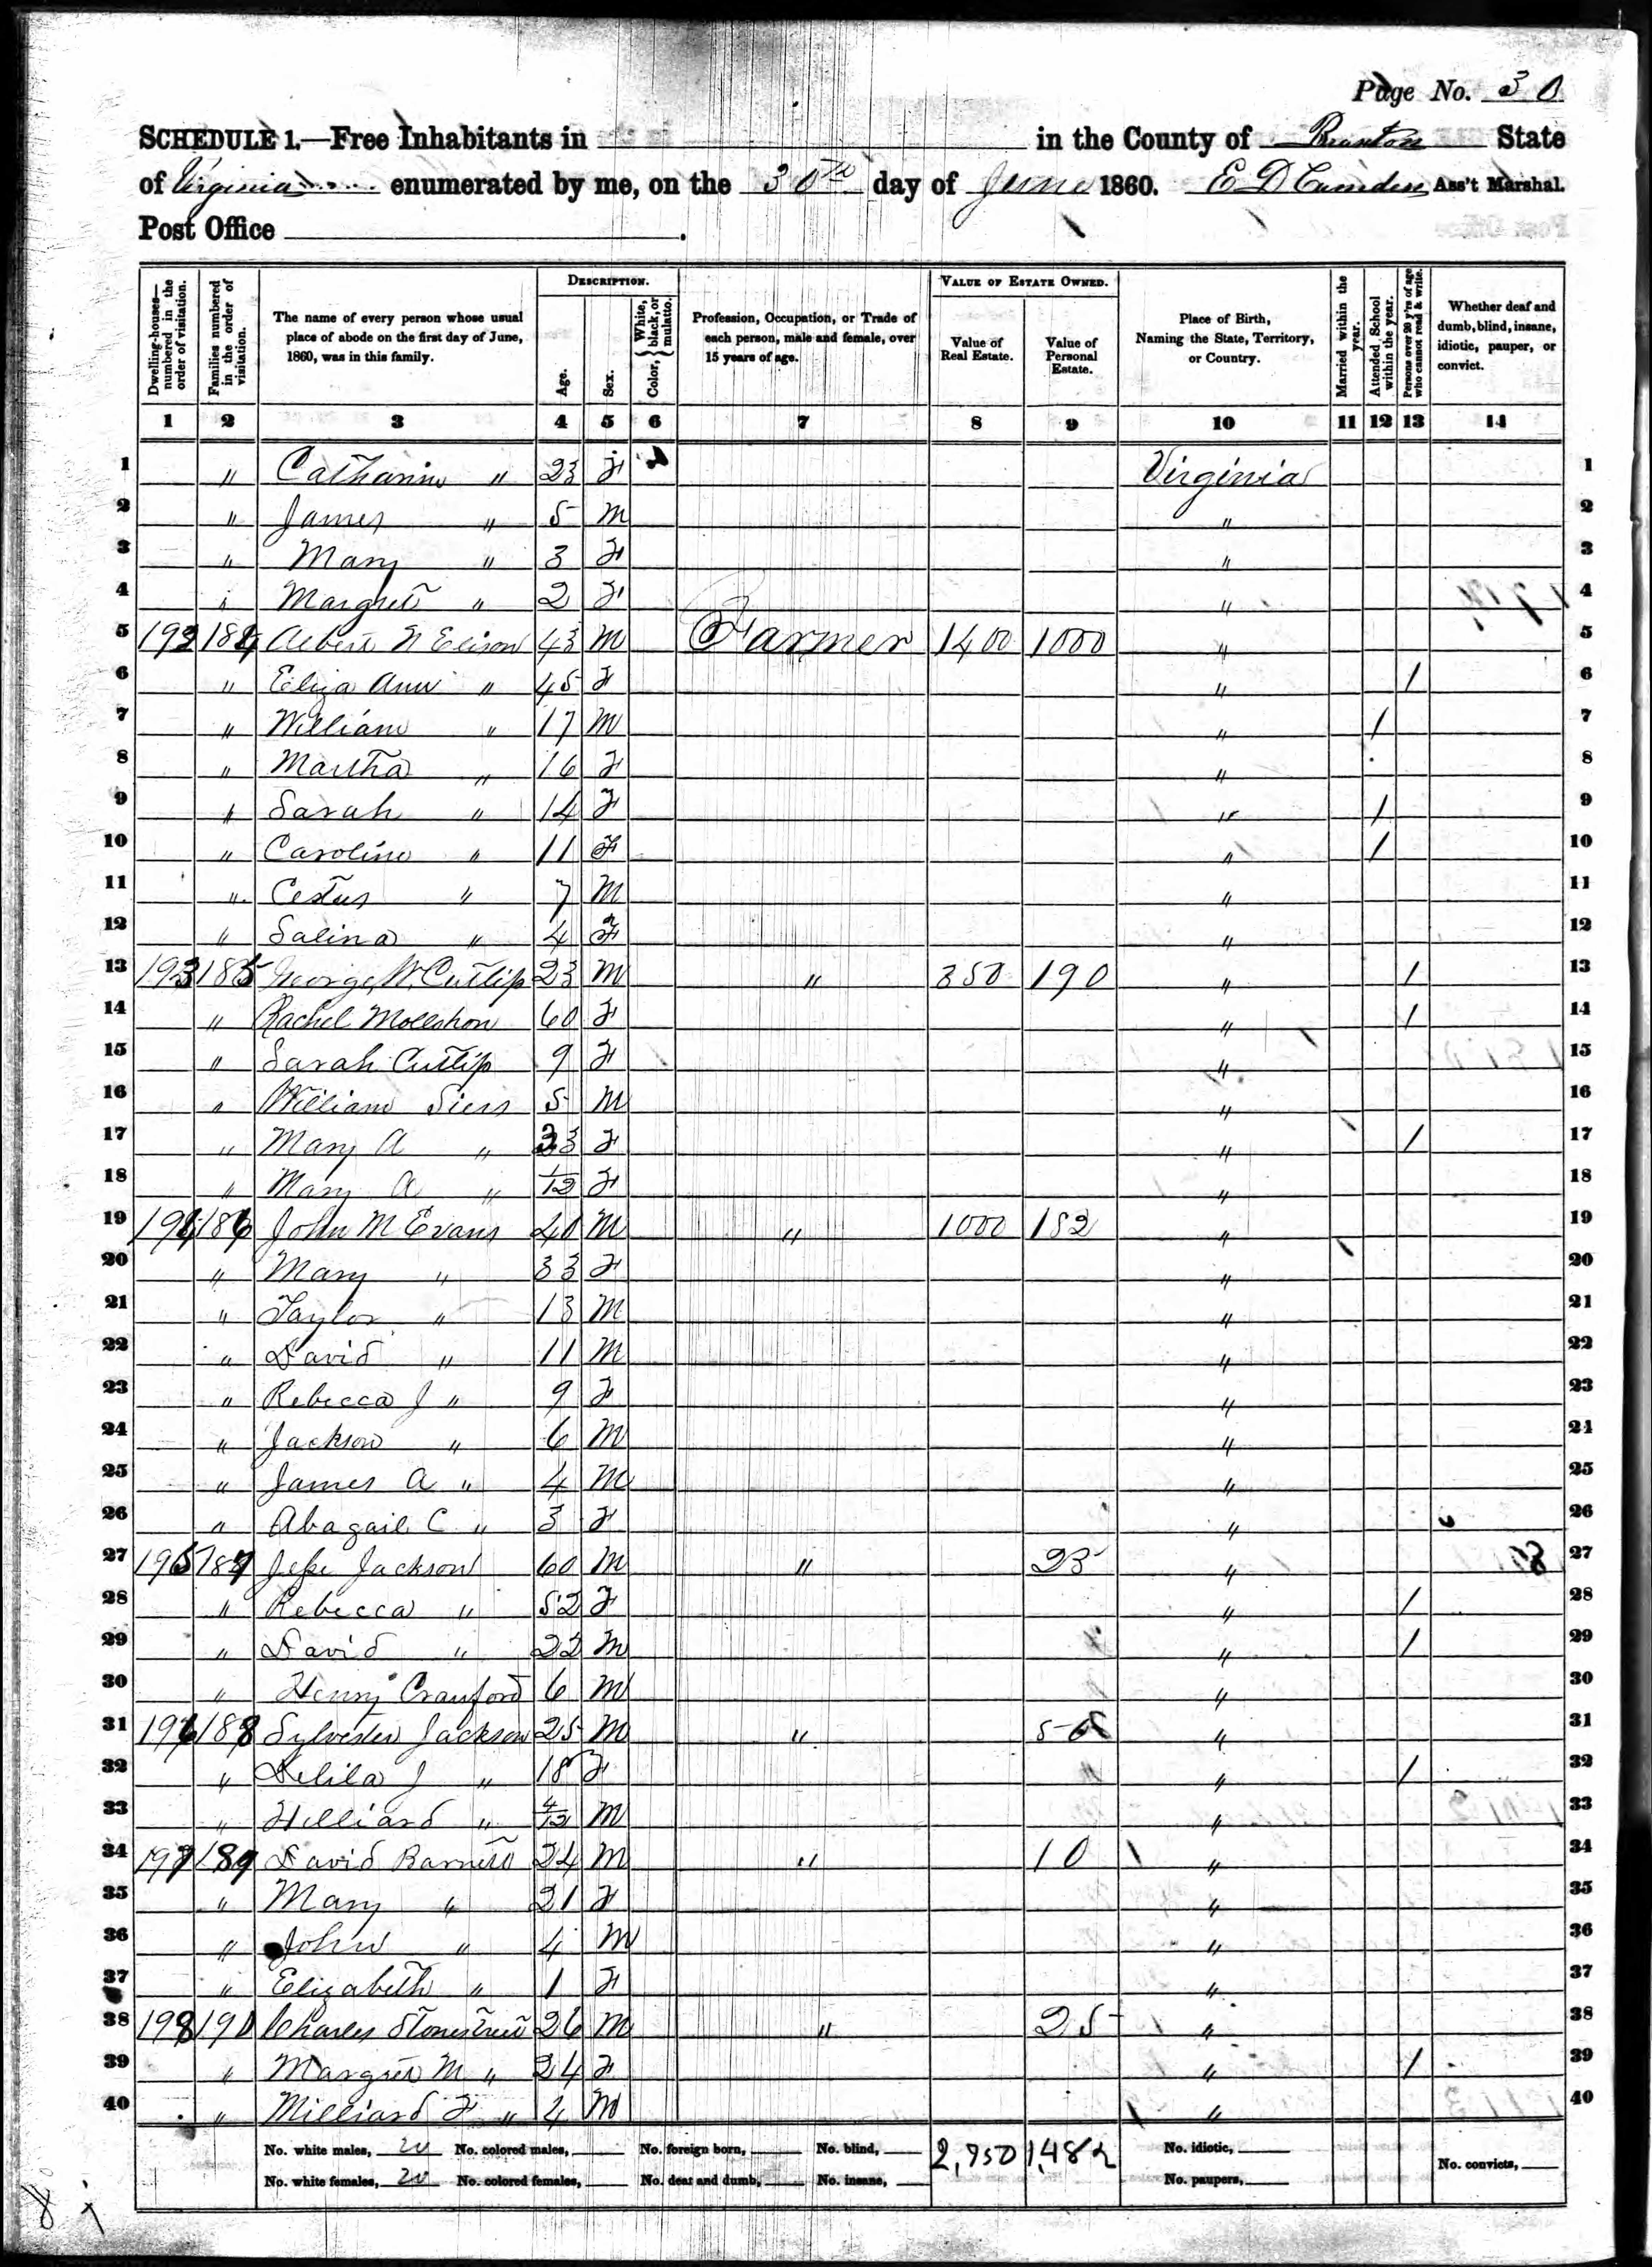 Page No. 30
SCHEDULE 1.—Free Inhabitants in in the County of Braxton State
of Virginia enumerated by me, on the 30th day of June 1860. E D Camden Ass't Marshal.
Post Office .
Dwelling-houses—numbered in the order of visitation. Families numbered in the order of visitation. The name of every person whose usual place of abode on the first day of June, 1860, was in this family. DESCRIPTION. Age. Sex. Color, { White, black, or mulatto. Profession, Occupation, or Trade of each person, male and female, over 15 years of age. VALUE OF ESTATE OWNED. Value of Real Estate. Value of Personal Estate. Place of Birth, Naming the State, Territory, or Country. Married within the year. Attended School within the year. Persons over 20 y'rs of age who cannot read & write. Whether deaf and dumb, blind, insane, idiotic, pauper, or convict.
1 2 3 4 5 6 7 8 9 10 11 12 13 14
1 " Catharine " 23 F Virginia 1
2 " James " 5 M " 2
3 " Mary " 3 F " 3
4 " Margret " 2 F " 4
5 192 184 Albert N Elison 43 M Farmer 1400 1000 " 5
6 " Eliza Ann " 45 F " / 6
7 " William " 17 M " / 7
8 " Martha " 16 F " 8
9 " Sarah " 14 F " / 9
10 " Caroline " 11 F " / 10
11 " Cestus " 7 M " 11
12 " Salina " 4 F " 12
13 193 185 George W. Cutlip 23 M " 350 190 " / 13
14 " Rachel Mollohon 60 F " / 14
15 " Sarah Cutlip 9 F " 15
16 " William Siers 5 M " 16
17 " Mary A " 33 F " / 17
18 " Mary A " 1/12 F " 18
19 194 186 John M Evans 40 M " 1000 182 " 19
20 " Mary " 33 F " 20
21 " Taylor " 13 M " 21
22 " David " 11 M " 22
23 " Rebecca J " 9 F " 23
24 " Jackson " 6 M " 24
25 " James A " 4 M " 25
26 " Abagail C " 3 F " 26
27 195 187 Jesse Jackson 60 M " 25 " 27
28 " Rebecca " 52 F " / 28
29 " David " 22 M " / 29
30 " Henry Crauford 6 M " 30
31 196 188 Sylvester Jackson 25 M " 50 " 31
32 " Delila J " 18 F " / 32
33 " Hilliard " 4/12 M " 33
34 197 189 David Barnett 24 M " 10 " 34
35 " Mary " 21 F " 35
36 " John " 4 M " 36
37 " Elizabeth " 1 F " 37
38 198 190 Charles Stonestreet 26 M " 25 " 38
39 " Margret M " 24 F " / 39
40 " Milliard F " 4 M " 40
No. white males, 20 No. colored males, No. foreign born, No. blind, 2,750 1,482 No. idiotic,
No. white females, 20 No. colored females, No. deaf and dumb, No. insane, No. paupers, No. convicts,